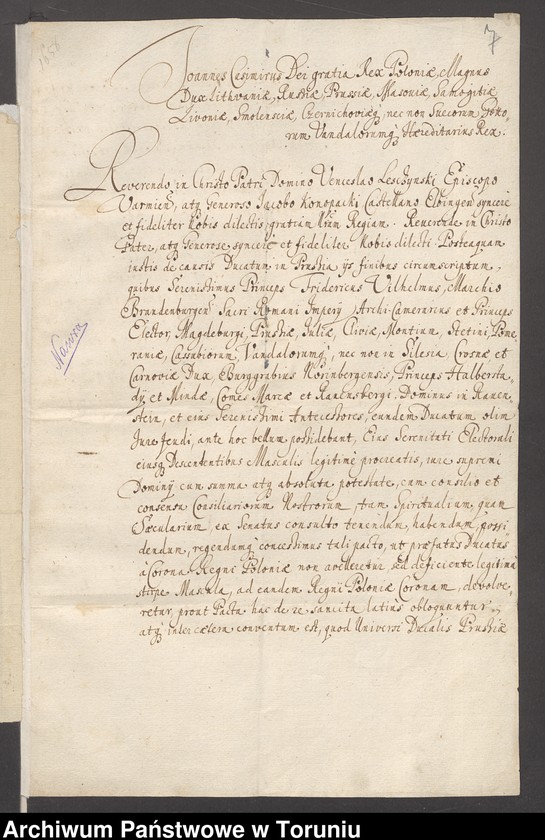 1658
7
Joannes Casimirus Dei gratia Rex Poloniæ, Magnus
Dux Lithvaniæ, Rußiæ, Prussiæ, Masoviæ, Samogitiæ
Livoniæ, Smolensciæ, Czernichoviæq, nec non Suecorum Gotto-
rum Vandalorumq Hæreditarius Rex.
Reverendo in Christo Patri Domino Venceslao Leszczynski Episcopo
Varmien, atq Generoso Jacobo Konopacki Castellano Elbingen syncere
et fideliter Nobis dilectis gratiam Nram Regiam. Reverende in Christo
Pater, atq Generose, syncere et fideliter Nobis dilecti. Posteaquam
iustis de causis Ducatum in Prußia ijs finibus circumscriptum,
quibus Serenissimus Princeps Fridericus Vilhelmus, Marchio
Brandenburgen Sacri Romani Imperij Archi-Camerarius et Princeps
Elector, Magdeburgi, Prußiæ, Juliæ, Cliviæ, Montium, Stetini, Pome
raniæ, Cassubiorum, Vandalorumq, nec non in Silesia, Crosnæ et
Carnoviæ Dux, Burggrabius Norinbergensis, Princeps Halbersta-
dij et Mindæ, Comes Marcæ et Ravensbergi, Dominus in Raven-
stein, et eius Serenissimi Antecessores, eundem Ducatum olim
Jure feudi, ante hoc bellum possidebant, Eius Serenitati Electorali
eiusq Descendentibus Masculis legitime procreatis, iure supremi
Dominij cum summa atq absoluta potestate, cum consilio et
consensu Consiliariorum Nostrorum, tam Spiritualium, quam
Sæcularium, ex Senatus consulto tenendum, habendum, possi
dendum, regendumq concessimus tali pacto, ut præfatus Ducatus
à Corona Regni Poloniæ non avelleretur sed deficiente legitima
stirpe Mascula, ad eandem Regni Poloniæ Coronam, devolve-
retur, prout Pacta hac de re sancita latius obloquuntur.
atq inter cætera conventum est, quod Universi Ducalis Prußiæ
Nawra
Archiwum Państwowe w Toruniu